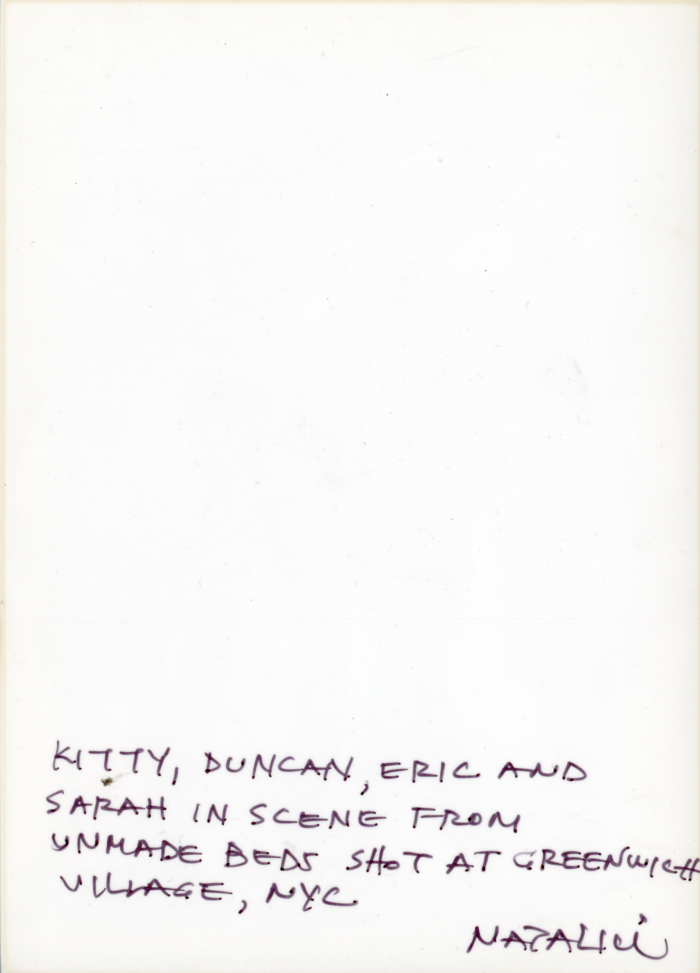 KITTY, DUNCAN, ERIC AND
SARAH IN SCENE FROM
UNMADE BEDS SHOT AT GREENWICH
VILLAGE, NYC